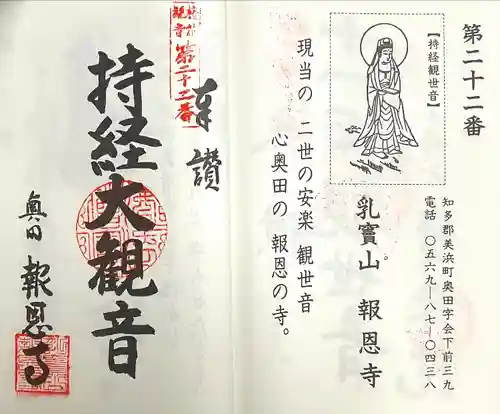 第二十二番
【持経観世音】
知多郡美浜町奥田字会下前三九
電話　〇五六九―八七―〇四三八
乳寳山　報恩寺
現当の　二世の安楽　観世音
心奥田の　報恩の寺。
第二十二番
奉讃
持経大観音
奥田　報恩寺